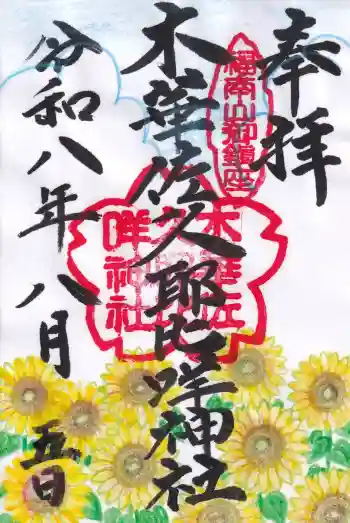 奉拝
福南山御鎮座
木華佐久耶比咩神社
木華佐
久耶比
咩神社
令和八年八月五日